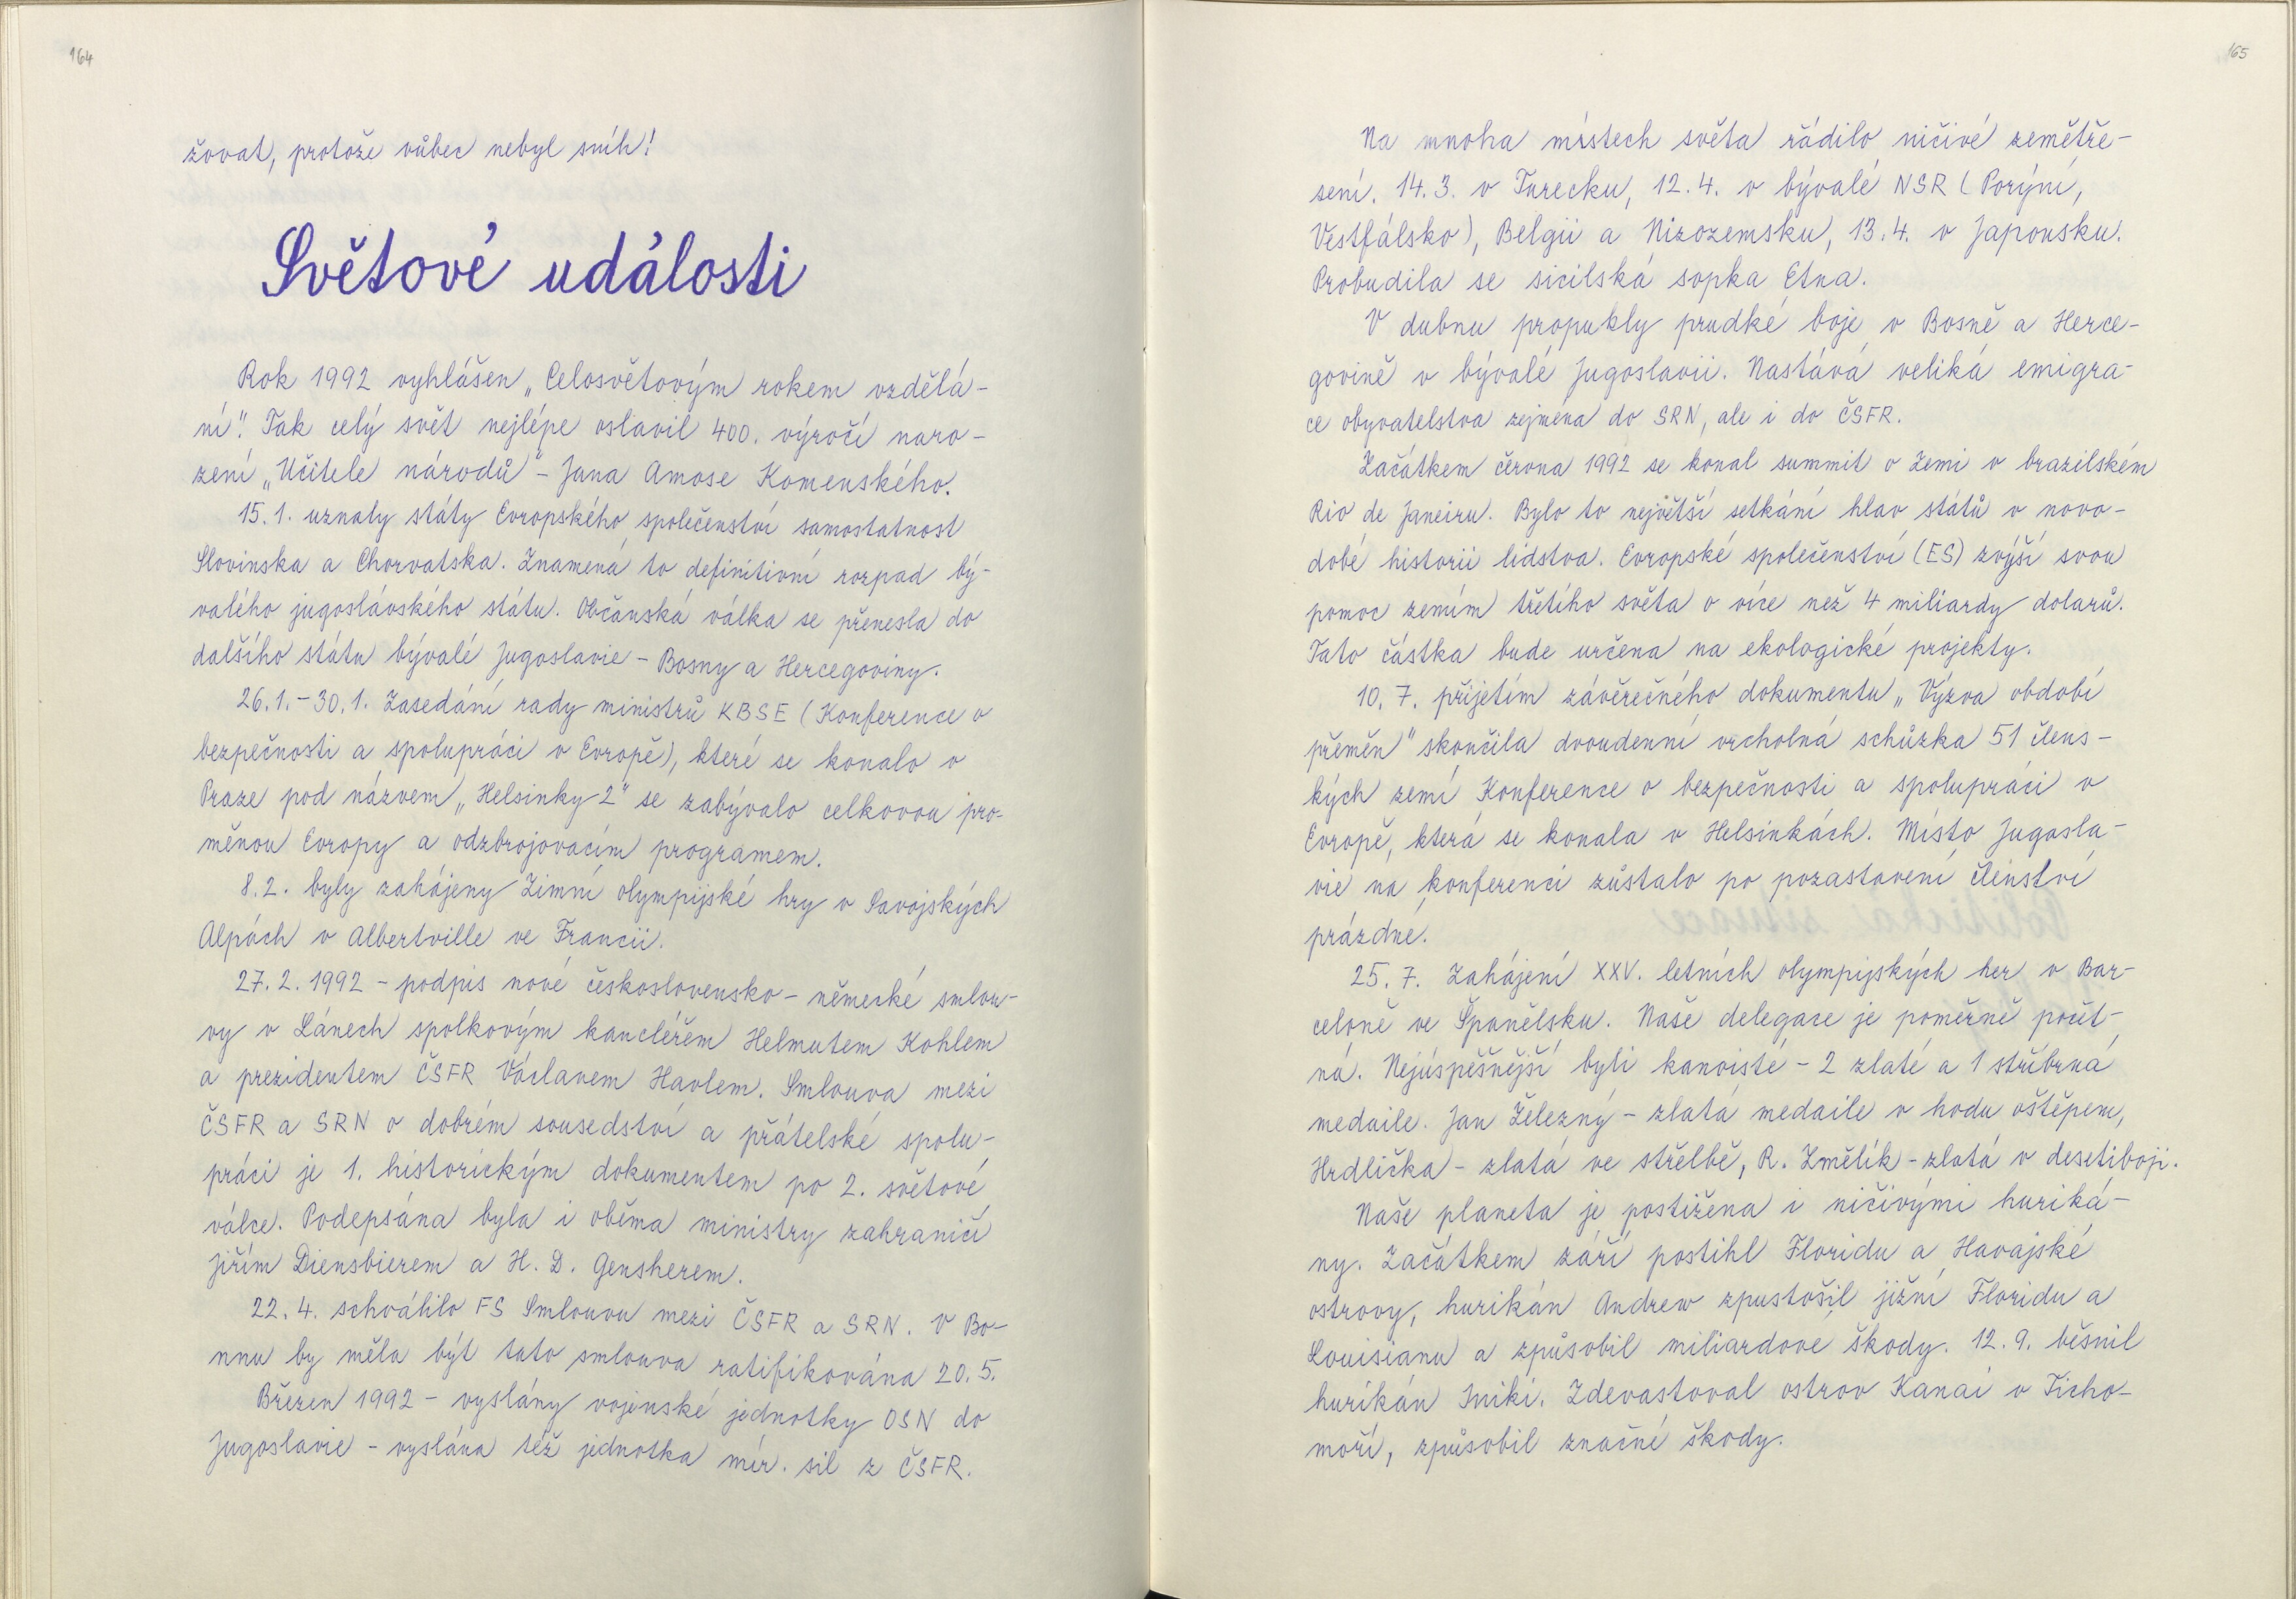 164
žovat, protože vůbec nebyl sníh!
Světové události
Rok 1992 vyhlášen „Celosvětovým rokem vzdělá-
ní". Tak celý svět nejlépe oslavil 400. výročí naro-
zení „Učitele národů" - Jana Amose Komenského.
15.1. uznaly státy Evropského společenství samostatnost
Slovinska a Chorvatska. Znamená to definitivní rozpad bý-
valého jugoslávského státu. Občanská válka se přenesla do
dalšího státu bývalé Jugoslavie - Bosny a Hercegoviny.
26.1.-30.1. Zasedání rady ministrů KBSE (Konference o
bezpečnosti a spolupráci v Evropě), které se konalo v
Praze pod názvem „Helsinky 2" se zabývalo celkovou pro-
měnou Evropy a odzbrojovacím programem.
8.2. byly zahájeny Zimní olympijské hry v Savojských
Alpách v Albertville ve Francii.
27.2.1992 - podpis nové československo-německé smlou-
vy v Lánech spolkovým kancléřem Helmutem Kohlem
a prezidentem ČSFR Václavem Havlem. Smlouva mezi
ČSFR a SRN o dobrém sousedství a přátelské spolu-
práci je 1. historickým dokumentem po 2. světové
válce. Podepsána byla i oběma ministry zahraničí
Jiřím Diensbierem a H. D. Gensherem.
22.4. schválilo FS Smlouvu mezi ČSFR a SRN. V Bo-
nnu by měla být tato smlouva ratifikována 20.5.
Březen 1992 - vyslány vojenské jednotky OSN do
Jugoslavie - vyslána též jednotka mír. sil z ČSFR.
165
Na mnoha místech světa řádilo ničivé zemětře-
sení. 14.3. v Turecku, 12.4. v bývalé NSR (Porýní,
Vestfálsko), Belgii a Nizozemsku, 13.4. v Japonsku.
Probudila se sicilská sopka Etna.
V dubnu propukly prudké boje v Bosně a Herce-
govině v bývalé Jugoslavii. Nastává veliká emigra-
ce obyvatelstva zejména do SRN, ale i do ČSFR.
Začátkem června 1992 se konal summit o Zemi v brazilském
Rio de Janeiru. Bylo to největší setkání hlav států v novo-
dobé historii lidstva. Evropské společenství (ES) zvýší svou
pomoc zemím třetího světa o více než 4 miliardy dolarů.
Tato částka bude určena na ekologické projekty.
10.7. přijetím závěrečného dokumentu „Výzva období
přeměn" skončila dvoudenní vrcholná schůzka 51 člens-
kých zemí Konference o bezpečnosti a spolupráci v
Evropě, která se konala v Helsinkách. Místo Jugosla-
vie na konferenci zůstalo po pozastavení členství
prázdné.
25.7. Zahájení XXV. letních olympijských her v Bar-
celoně ve Španělsku. Naše delegace je poměrně počet-
ná. Nejúspěšnější byli kanoisté - 2 zlaté a 1 stříbrná
medaile. Jan Železný - zlatá medaile v hodu oštěpem,
Hrdlička - zlatá ve střelbě, R. Změlík - zlatá v desetiboji.
Naše planeta je postižena i ničivými huriká-
ny. Začátkem září postihl Floridu a Havajské
ostrovy, hurikán Andrew zpustošil jižní Floridu a
Louisianu a způsobil miliardové škody. 12.9. běsnil
hurikán Iniki. Zdevastoval ostrov Kanai v Ticho-
moří, způsobil značné škody.